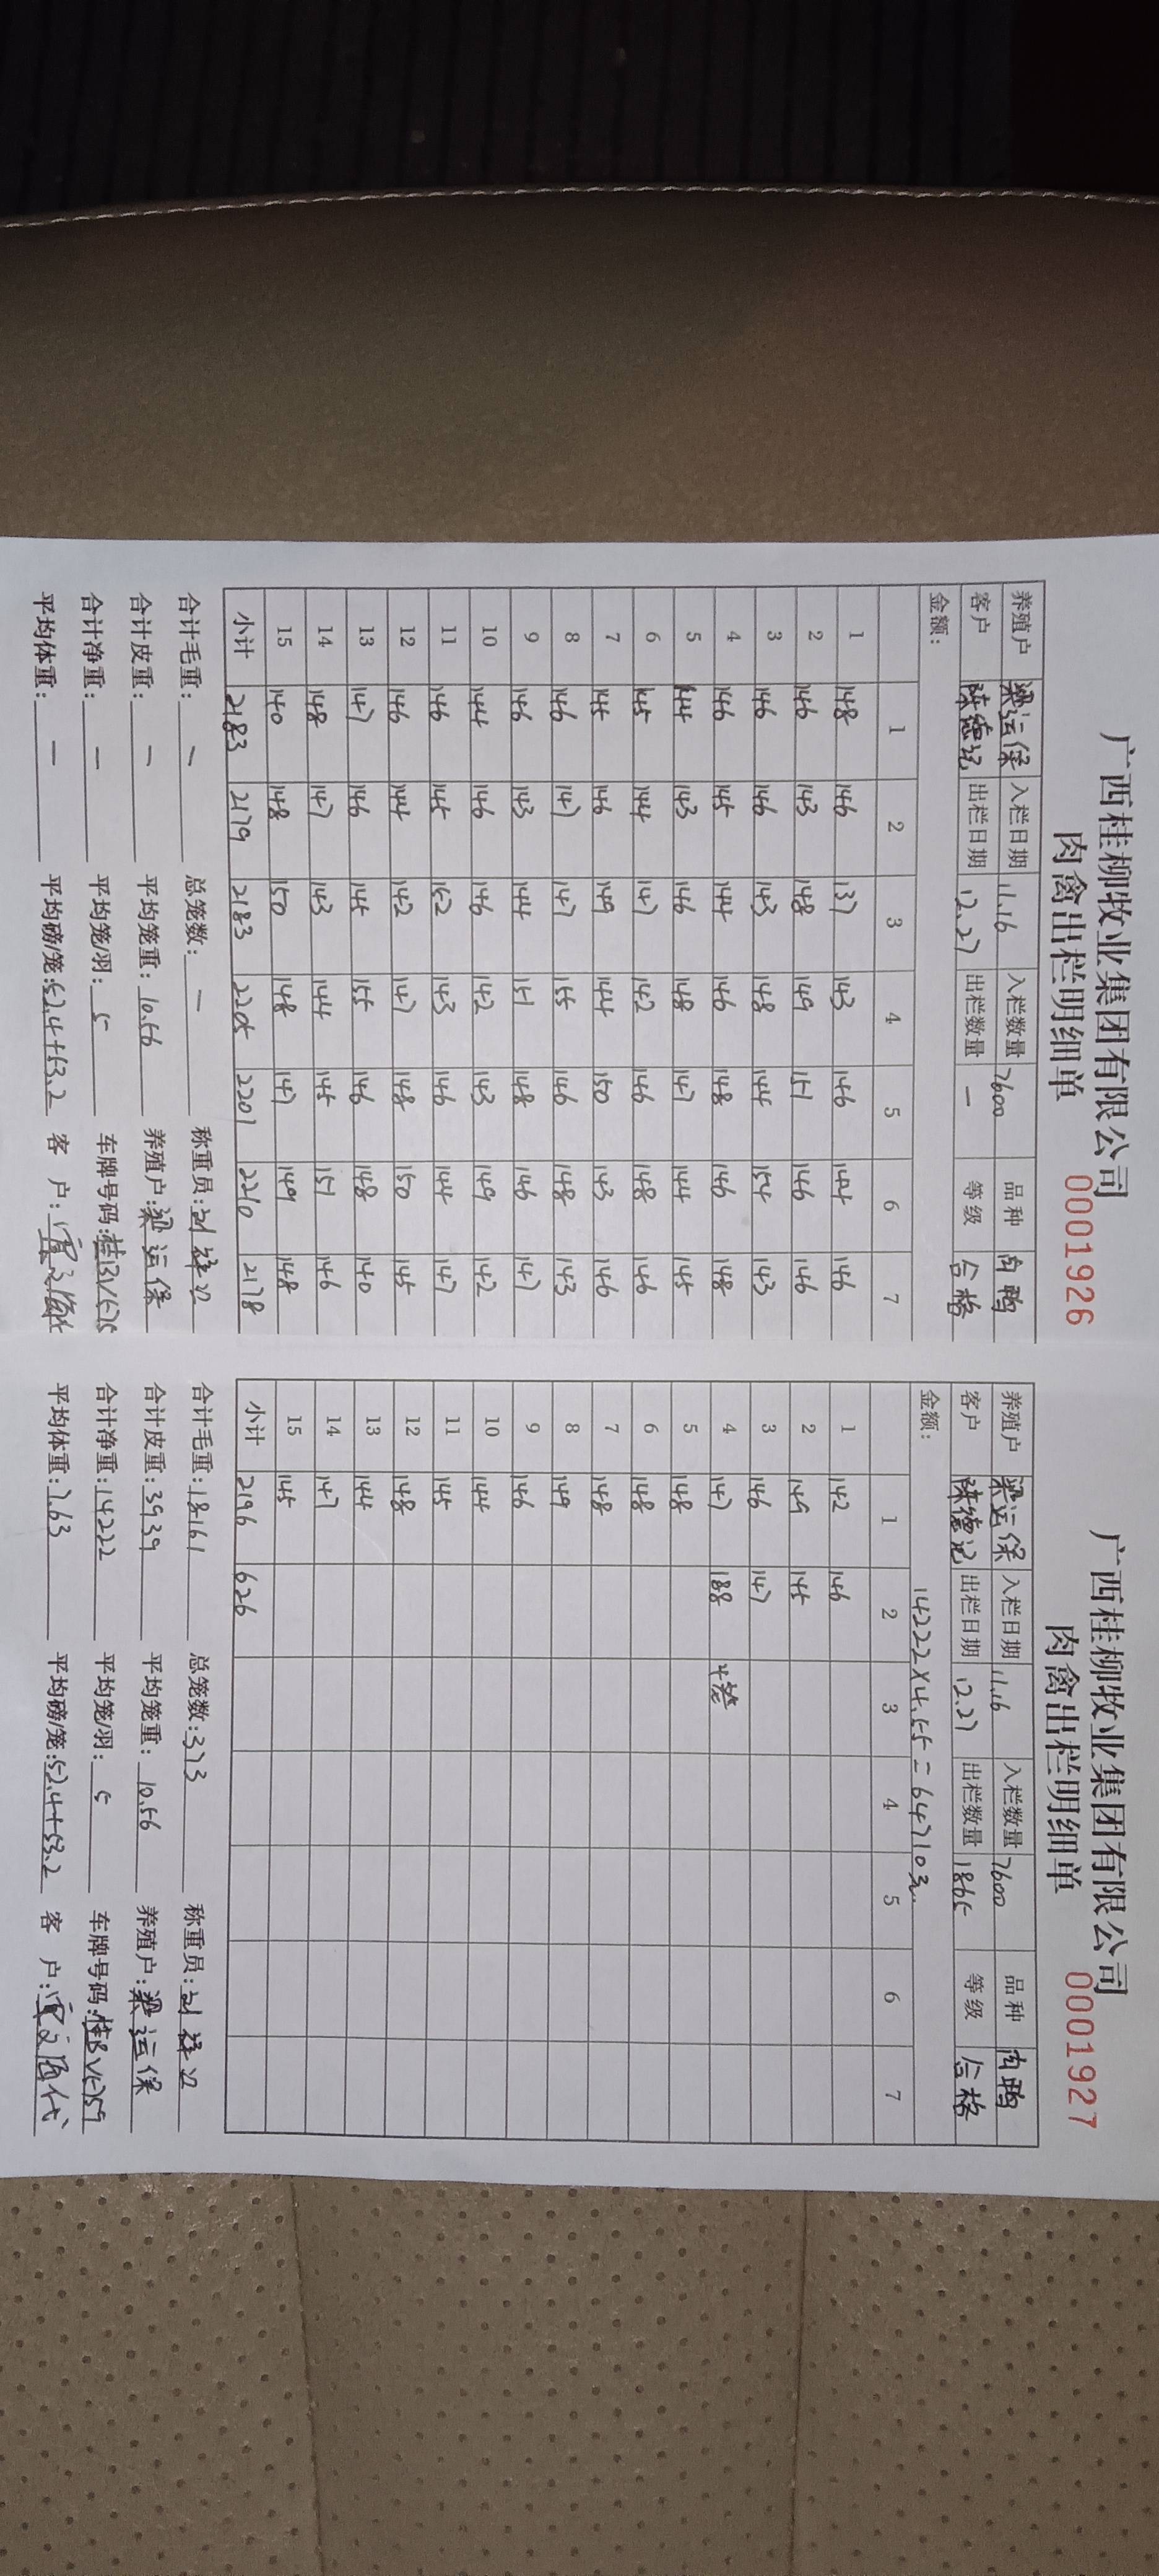 广西桂柳牧业集团有限公司
肉禽出栏明细单 0001926
养殖户 梁运保 入栏日期 11.16 入栏数量 7600 品种 肉鸭
客户 陈德记 出栏日期 12.27 出栏数量 一 等级 合格
金额:
1 2 3 4 5 6 7
1 148 146 137 143 146 144 146
2 146 143 148 149 151 146 146
3 146 146 143 148 144 154 143
4 146 145 144 146 148 146 148
5 144 143 146 148 147 144 145
6 145 144 147 142 146 148 146
7 145 146 149 144 150 143 146
8 146 147 147 155 146 148 143
9 146 143 144 151 148 146 147
10 144 146 146 142 143 149 142
11 146 145 152 143 146 144 147
12 146 144 142 147 148 150 145
13 147 146 145 155 146 148 140
14 148 147 143 144 145 151 146
15 140 148 150 148 147 149 148
小计 2183 2179 2183 2205 2201 2210 2178
合计毛重: 一 总笼数: 一 称重员:
合计皮重: 一 平均笼重: 10.56 养殖户: 梁运保
合计净重: 一 平均笼/羽: 5 车牌号码:
平均体重: 一 平均磅/笼: 52.4+53.2 客 户:
广西桂柳牧业集团有限公司
肉禽出栏明细单 0001927
养殖户 梁运保 入栏日期 11.16 入栏数量 7600 品种 肉鸭
客户 陈德记 出栏日期 12.27 出栏数量 1865 等级 合格
金额: 14222×4.55=64710元
1 2 3 4 5 6 7
1 142 146
2 149 145
3 146 147
4 147 188
5 148
6 148
7 148
8 149
9 146
10 144
11 145
12 148
13 144
14 147
15 145
小计 2196 626
合计毛重: 18161 总笼数: 373 称重员:
合计皮重: 3939 平均笼重: 10.56 养殖户: 梁运保
合计净重: 14222 平均笼/羽: 5 车牌号码:
平均体重: 7.63 平均磅/笼: 52.4+53.2 客 户: